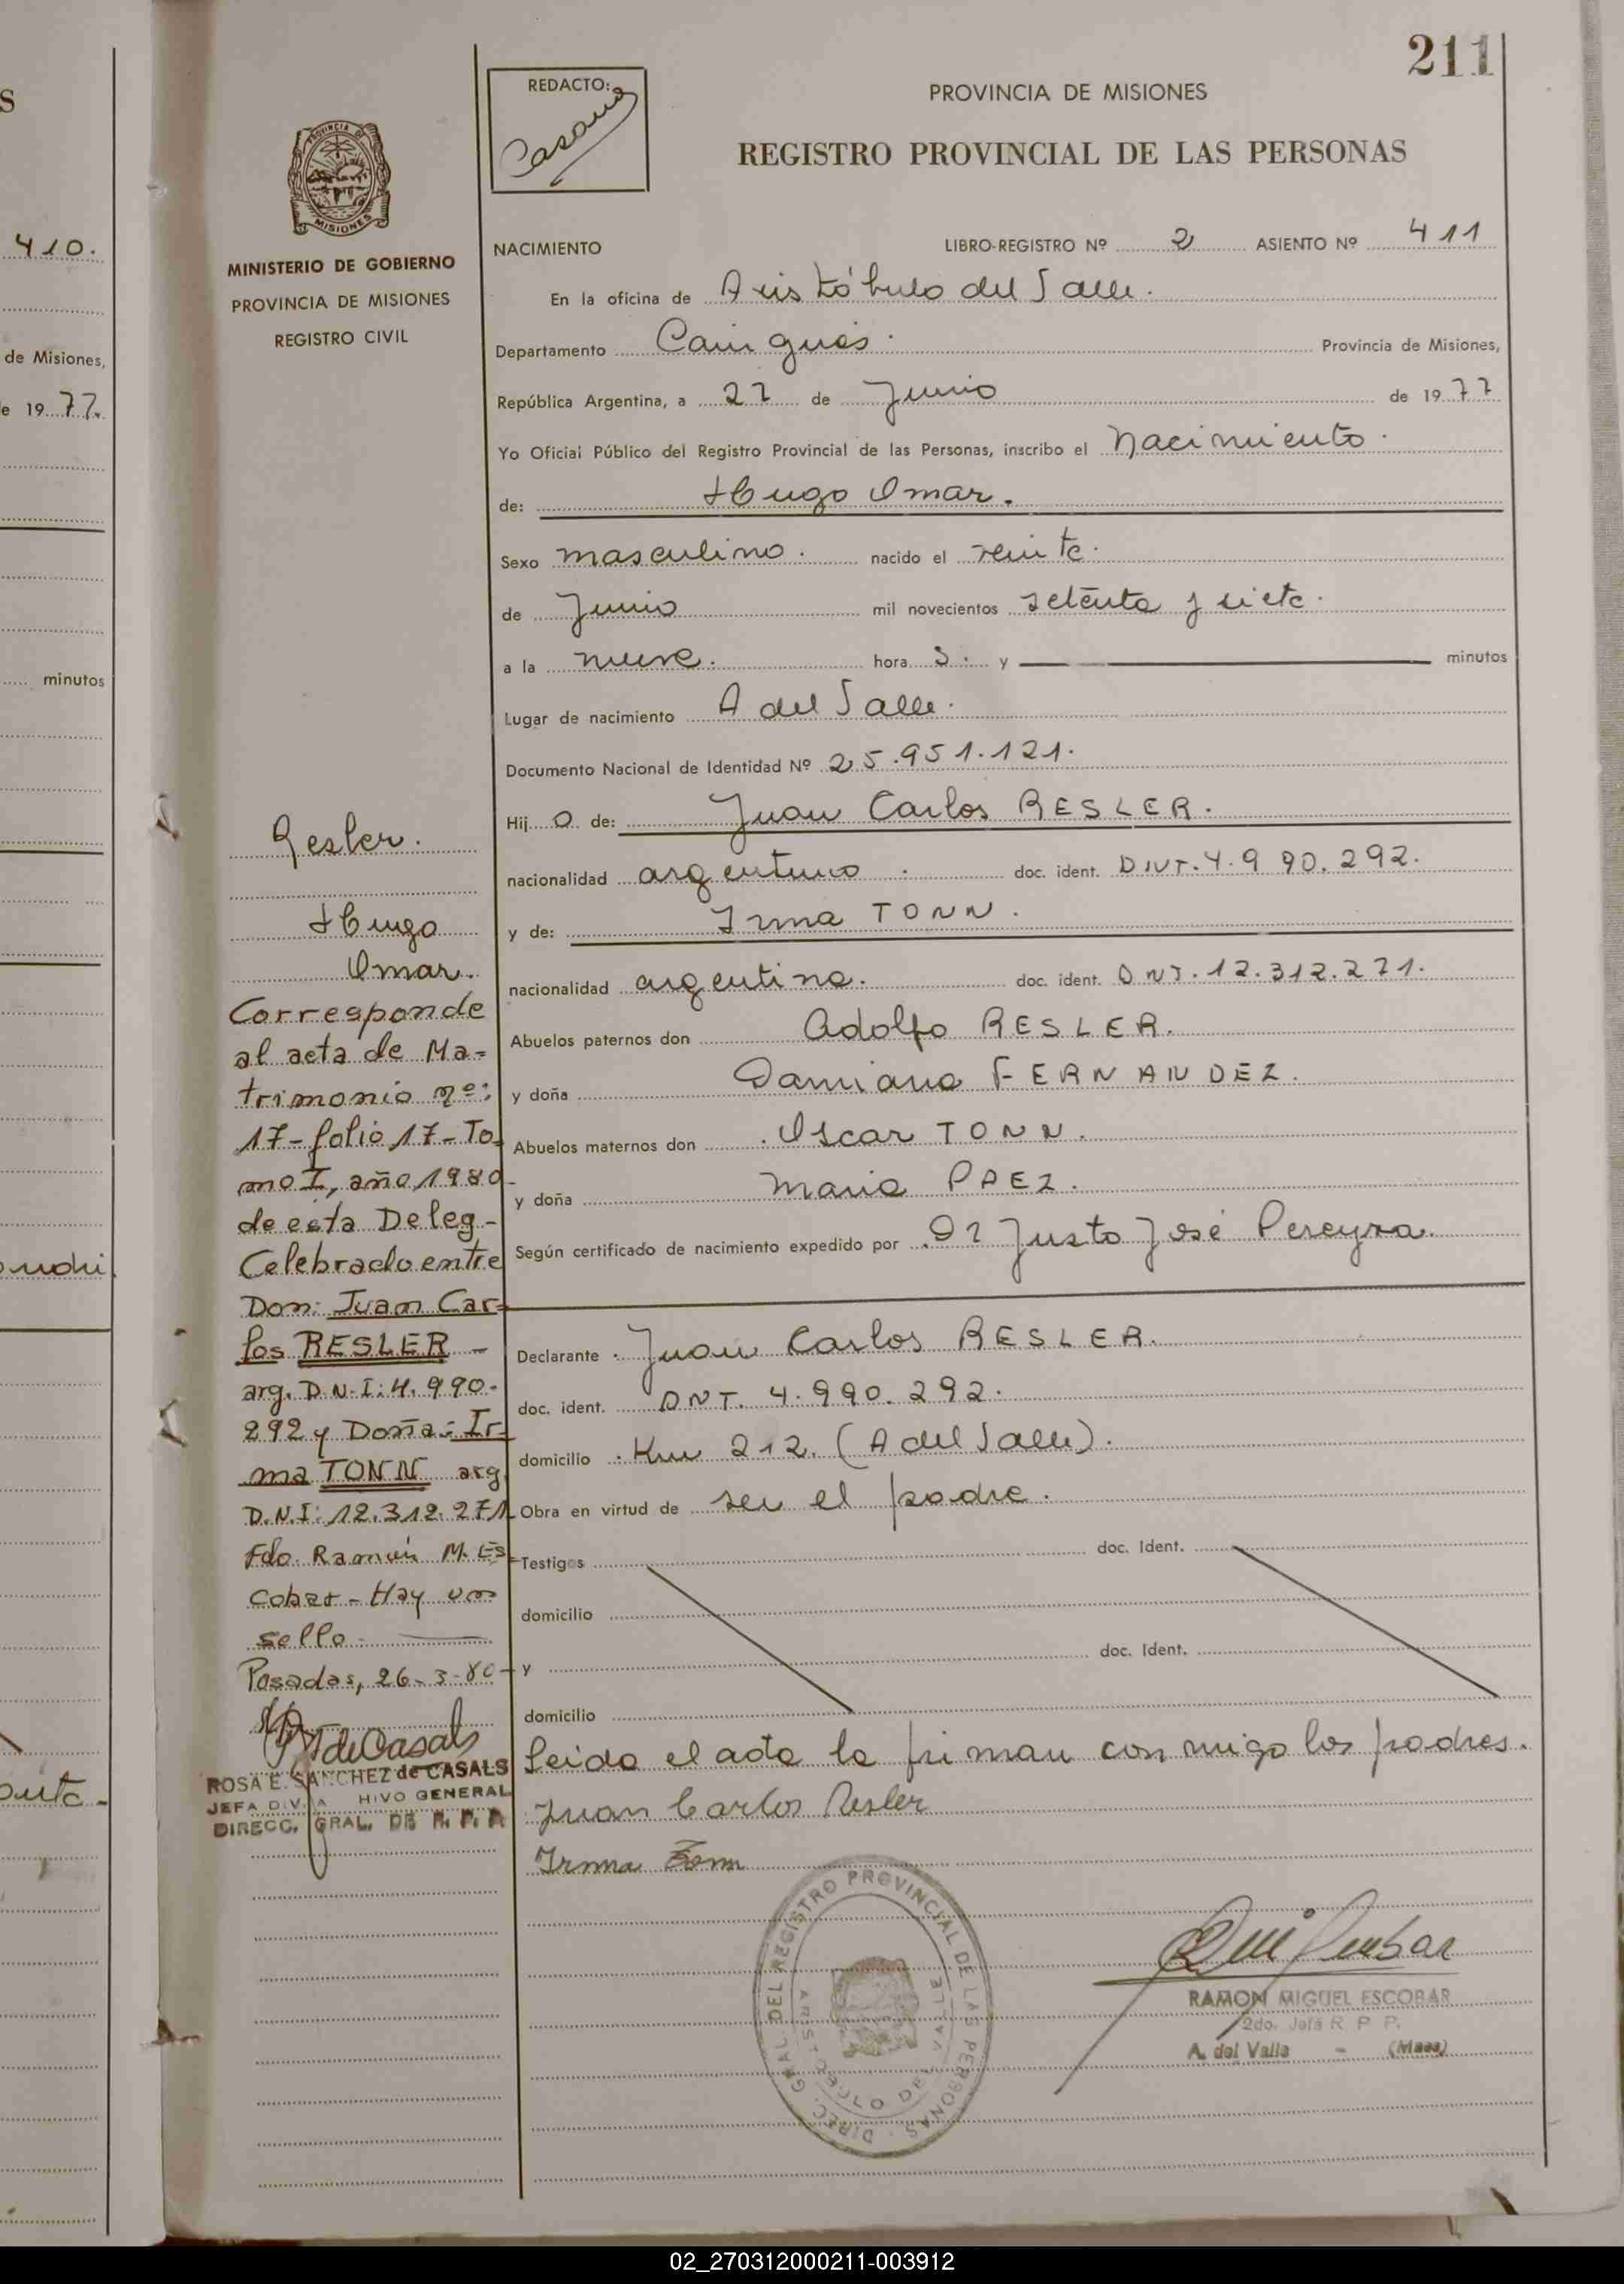 S
410.
de Misiones,
e 19 77.
minutos
211
REDACTO:
PROVINCIA DE MISIONES
REGISTRO PROVINCIAL DE LAS PERSONAS
PROVINCIA DE
MISIONES
MINISTERIO DE GOBIERNO
PROVINCIA DE MISIONES
REGISTRO CIVIL
NACIMIENTO LIBRO-REGISTRO Nº 2 ASIENTO Nº 411
En la oficina de Aristóbulo del Valle.
Departamento Cainguás. Provincia de Misiones,
República Argentina, a 27 de Junio de 1977
Yo Oficial Público del Registro Provincial de las Personas, inscribo el Nacimiento.
de: Hugo Omar.
Sexo masculino. nacido el veinte.
de Junio mil novecientos setenta y siete.
a la nueve. hora s. y minutos
Lugar de nacimiento A del Valle.
Documento Nacional de Identidad Nº 25.951.121.
Hij o de: Juan Carlos RESLER.
nacionalidad argentino. doc. ident. DNI. 4.990.292.
y de: Irma TONN.
nacionalidad argentina. doc. ident. DNI. 12.312.271.
Abuelos paternos don Adolfo RESLER.
y doña Damiana FERNANDEZ.
Abuelos maternos don Oscar TONN.
y doña Maria PAEZ.
Según certificado de nacimiento expedido por Dr Justo José Pereyra.
Declarante Juan Carlos RESLER.
doc. ident. DNI. 4.990.292.
domicilio Km 212. (A del Valle).
Obra en virtud de ser el padre.
Testigos doc. Ident.
domicilio
y doc. Ident.
domicilio
Leida el acta la firman conmigo los padres.
Juan Carlos Resler
Irma Tonn
Resler.
Hugo
Omar.
Corresponde
al acta de Ma=
trimonio nº:
17-folio 17-To
mo I, año 1980
de esta Deleg-
Celebrado entre
Don: Juan Car=
los RESLER -
arg. D.N.I: 4.990-
292 y Doña: Ir-
ma TONN arg
D.N.I: 12.312.271
Fdo. Ramón M. Es
cobar - Hay un
sello.
Posadas, 26-3-80
de Casals
ROSA E. SANCHEZ de CASALS
JEFA DIV. A HIVO GENERAL
DIRECC. GRAL. DE R. P. P.
DIREC. GRAL. DEL REGISTRO PROVINCIAL DE LAS PERSONAS
ARISTOBULO DEL VALLE
RAMON MIGUEL ESCOBAR
2do. Jefe R. P. P.
A. del Valle - (Mnes)
02_270312000211-003912